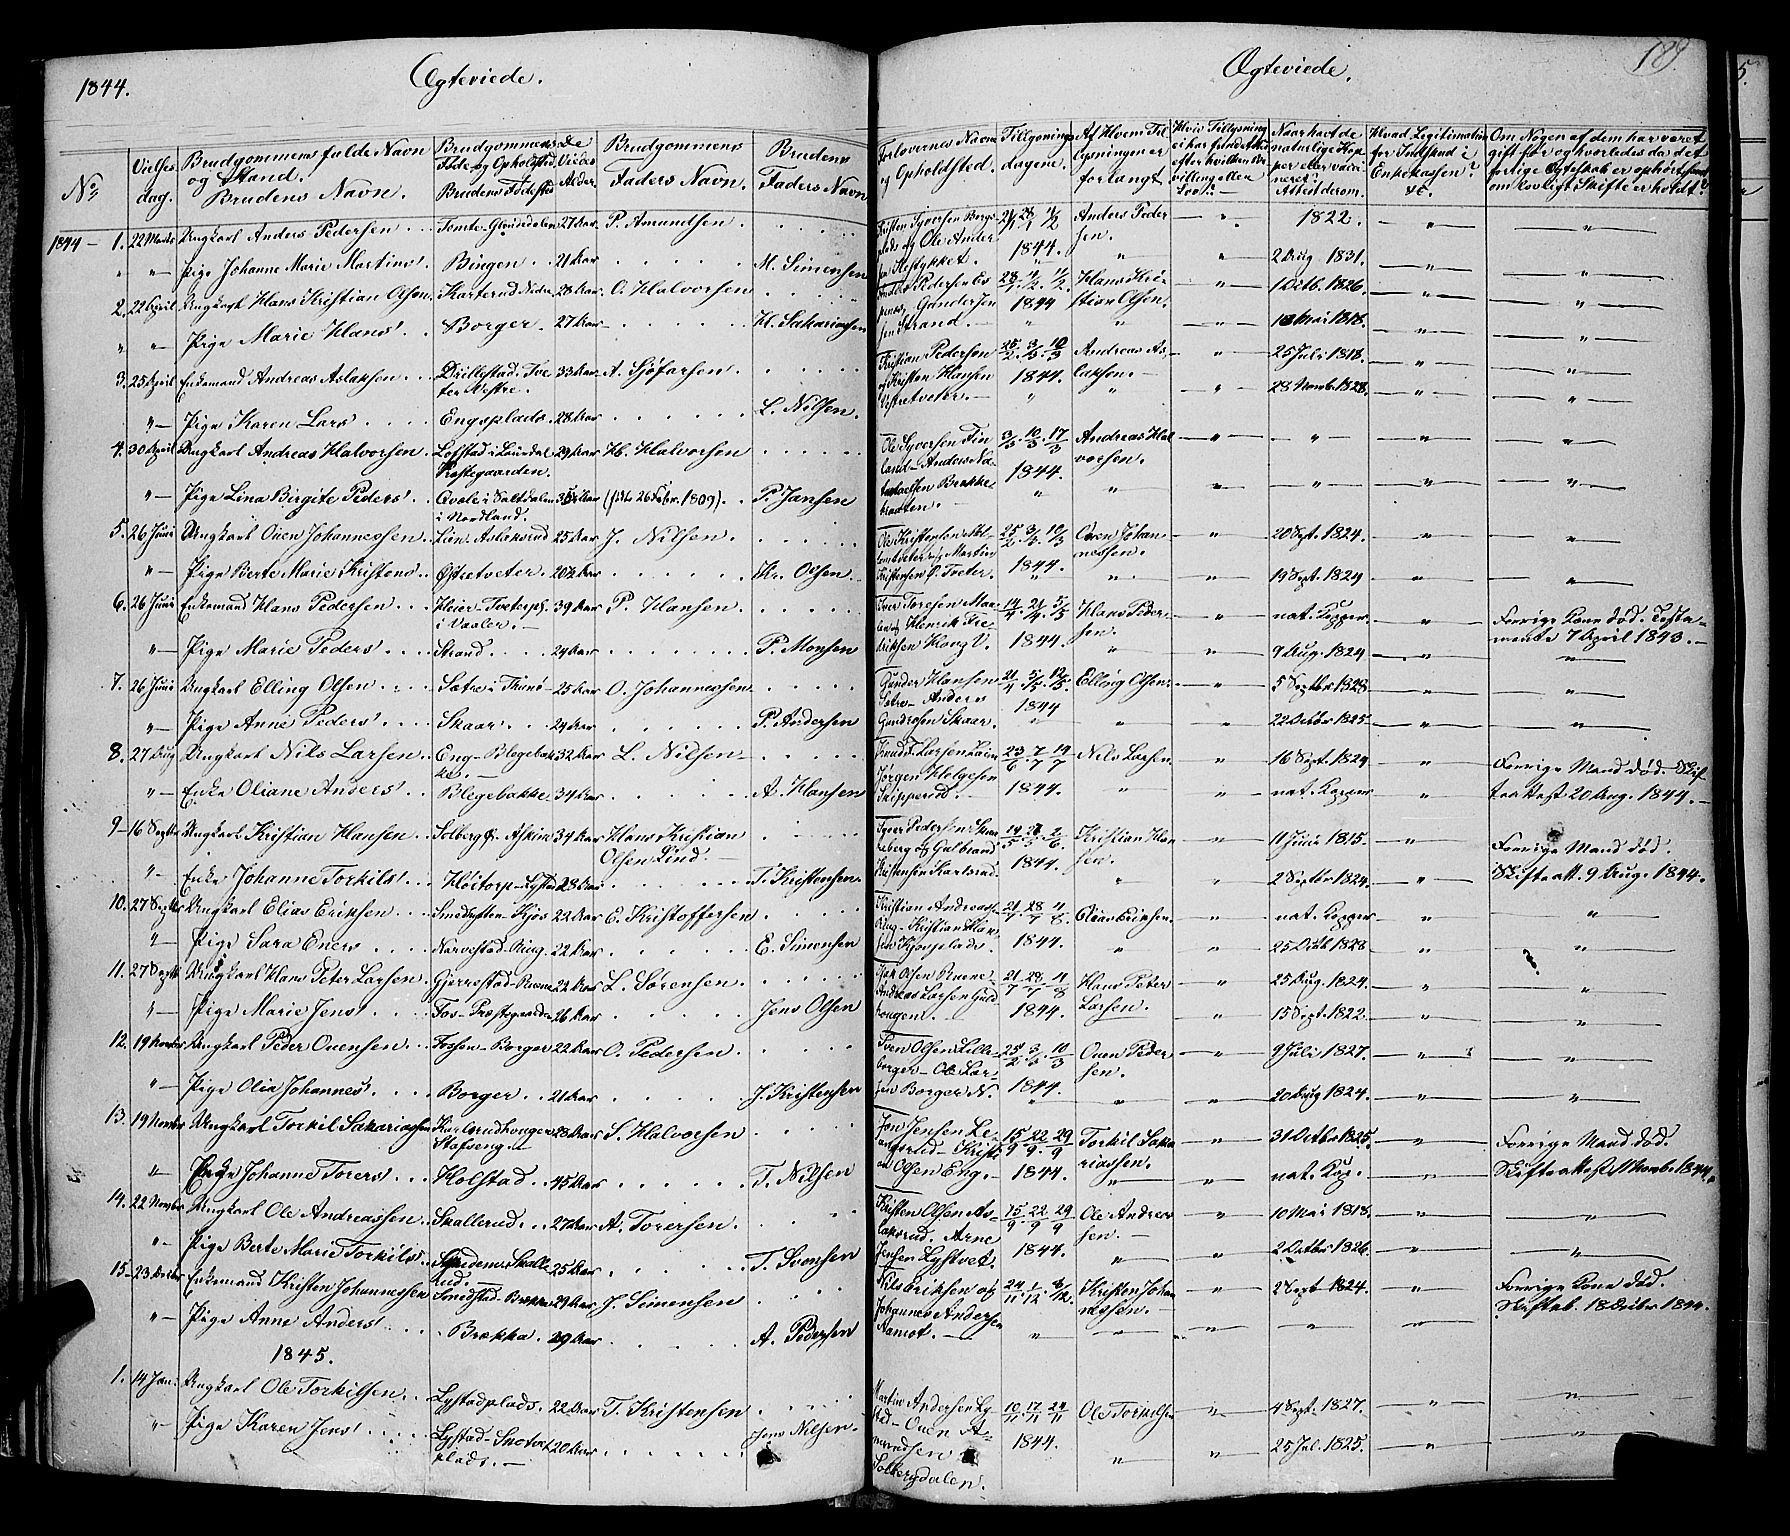 1844.
Ægteviede.
No
Vielses dag.
Brudgommens fulde Navn og Stand.
Brudens Navn.
Brudgommens Føde og Opholdsted
Brudens Fødested
De Viedes Alder.
Brudgommens Faders Navn.
Brudens Faders Navn
1844 — 1. 22 Marts Ungkarl Anders Pedersen Tomte-Glendedalen 27 Aar P. Amundsen
" — Pige Johanne Marie Martins Bingen 21 Aar M. Simensen
2. 22 April Ungkarl Hans Kristian Olsen Karterud Nedre 28 Aar O. Halvorsen
" — Pige Marie Hans Borger 27 Aar H. Sakariasen
3. 25 April Enkemand Andreas Aslaksen Drillestad. Tve ter Vestre. 33 Aar A. Sjøfarsen
" — Pige Karen Lars Engsplads. 28 Aar L. Nilsen.
4. 30 April Ungkarl Andreas Halvorsen Løfstad i Laurdal Prestegaarden. 29 Aar H. Halvorsen
" — Pige Lina Birgite Peders Qvale i Saltdalen i Nordland. 35 Aar (fød 26 Febr. 1809). P. Jansen
5. 26 Juni Ungkarl Ouen Johannessen Lien. Aslaksrud 25 Aar J. Nilsen.
" — Pige Berte Marie Kristens Østretveter 20½ Aar Kr. Olsen
6. 26 Juni Enkemand Hans Pedersen Heier-Tveterpl. i Vaaler. 39 Aar P. Hansen
" — Pige Marie Peders Strand 24 Aar P. Monsen
7. 26 Juni Ungkarl Elling Olsen Sætre i Thunø 25 Aar O. Johannessen
" — Pige Anne Peders Skaar 24 Aar P. Andersen
8. 27 Aug Ungkarl Nils Larsen Eng-Blegebakke. 32 Aar L. Nilsen
" — Enke Oliane Anders Blegebakke 34 Aar A. Hansen
9 — 16 Septbr Ungkarl Kristian Hansen Solberg Ø. Askim 34 Aar Hans Kristian Olsen Lind.
" — Enke Johanne Torkils Høitorp-Lystad 28 Aar T. Kristensen
10. 27 Septbr Ungkarl Elias Eriksen Smedsæten Kjos 22 Aar E. Kristoffersen
" — Pige Sara Eners Narvestad-Ring 22 Aar E. Simensen
11. 27 Septbr Ungkarl Hans Peter Larsen Gjerrestad-Ruene 22 Aar L. Sørensen
" — Pige Marie Jens Fos-Præstegaarden 26 Aar Jens Olsen
12. 19 Novbr Ungkarl Peder Ouensen Fossen-Borger 22 Aar O. Pedersen
" — Pige Olia Johannes Borger 21 Aar J. Kristensen
13. 19 Novbr Ungkarl Torkil Sakariassen Karlsrudhaugen Stefseng. 28 Aar S. Halvorsen
" — Enke Johanne Torers Holstad 45 Aar T. Nilsen
14. 22 Novbr Ungkarl Ole Andreassen Skallerud 27 Aar A. Torersen
" — Pige Berte Marie Torkils Skallerud. 25 Aar T. Svensen
15 — 23 Decbr Enkemand Kristen Johannessen Smedstad-Brekka 29 Aar J. Simensen
" — Pige Anne Anders Brække 29 Aar A. Pedersen
1845.
1. 14 Jan. Ungkarl Ole Torkilsen Lystadplads. 22 Aar T. Kristensen
" — Pige Karen Jens Lystad-plads. 20 Aar Jens Nilsen
Ægteviede.
189
Forlovernes Navn og Opholdsted.
Tillysnings dagene.
Af Hvem Tillysningen er forlangt.
Hvis Tillysning ei har fundet sted efter hvilken Bevilling eller Lov?
Naar havt de naturlige Kopper eller vaccineret? Attest derom.
Hvad Legitimation for Indskud i Enkekassen? &c.
Om Nogen af dem har været gift før og hvorledes da det forrige Ægteskab er ophørt samt om lovligt Skifte er holdt?
Kristen Syversen Bergsplads og Ole Andersen Hestykket. 21/1 28/1 4/2 1844. Anders Pedersen. 1822.
2 Aug 1831.
Pedersen Gunder Jensen Strand. 28/1 4/2 11/2 1844 Hans Kristian Olsen. 1 Octb. 1826.
18 Mai 1818.
Kristian Pedersen og Kristen Hansen Vestretveter. 25/2 3/3 10/3 1844. Andreas Aslaksen. 25 Juli 1818.
28 Novemb. 1828.
Ole Syversen Finland-Anders Brækkebraaten. 3/3 10/3 17/3 1844. Andreas Halvorsen.
Ole Kristensen Martin Kristensen Ø. Tveter. 25/2 3/3 10/3 1844. Ouen Johannessen. 20 Sept. 1824.
19 Sept. 1824
Iver Toresen Henrik Fredriksen Haug V. 14/4 21/4 5/5 1844. Hans Pedersen. nat. Kopper Forrige Kone død. Testamente 7 April 1843.
9 Aug. 1824
Gunder Hansen Sætre-Anders Gundersen Skaar. 21/4 5/5 12/5 1844 Elling Olsen. 5 Septbr 1828
22 Octbr 1825.
Knud F. Larsen Lien Jørgen Helgesen Skipperud. 23/6 7/7 14/7 1844. Nils Larsen. 16 Sept. 1824
nat. Kopper Forrige Mand død. Skifteattest 20 Aug. 1844.
Iver Pedersen og Gulbrand Kristensen Karlsrud 19/5 26/5 2/6 1844. Kristian Hansen. 11 Juni 1815.
2 Septbr 1824. Forrige Mand død. Skifteatt. 9 Aug. 1844.
Kristian Andreassen Ring-Kristian Hansen Kjosplads. 21/7 28/7 4/8 1844. Elias Eriksen. nat. Kopper
25 Oct. 1828
Olsen Ruene Andreas Larsen Guldhaugen. 21/7 28/7 4/8 1844. Hans Peter Larsen. 25 Aug. 1824.
15 Sept. 1822.
Sven Olsen Lilleborger-Ole Larsen Borger N. 25/2 3/3 10/3 1844. Ouen Pedersen. 9 Juli 1827.
20 Aug 1824.
Jon Jensen Langsrud-Kristian Olsen Eng. 15/9 22/9 29/9 1844. Torkil Sakariassen. 31 Octbr 1825. Forrige Mand død.
nat. Kop. Skifteattest 11 Novemb. 1844.
Kristen Olsen Aslaksrud. Arne Jensen Lystvet. 15/9 22/9 29/9 1844. Ole Andreassen. 10 Mai 1818.
2 Octbr 1826.
Nils Eriksen og Johannes Andersen Aamot. 24/11 1/12 8/12 Kristen Johannessen. 2 Sept 1824. Forrige Kone død. Skifteb. 18 Decbr 1844.
Martin Andersen Lystad-Ouen Amundsen Solbergdalen. 10/11 17/11 24/11 1844. Ole Torkilsen 4 Sept. 1827.
25 Jul. 1825.
5.